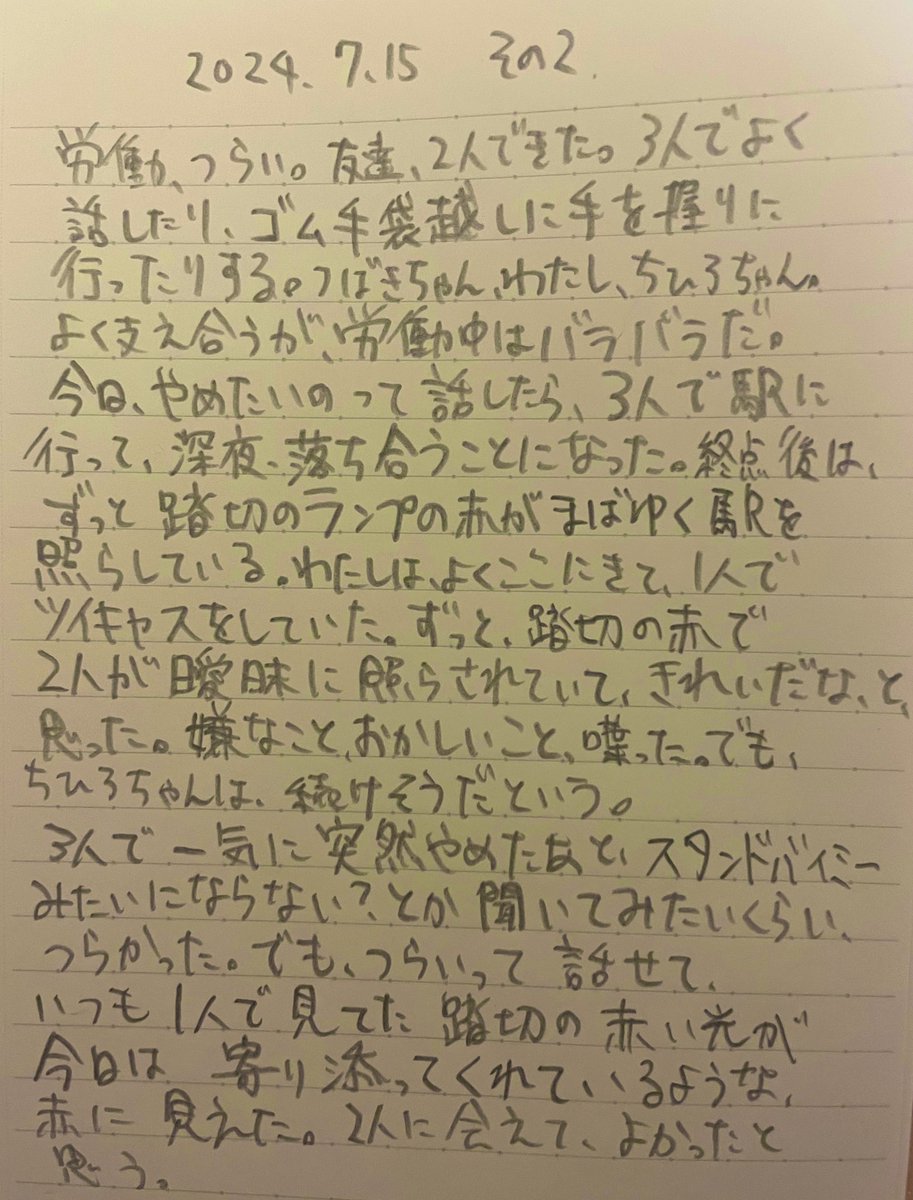 2024.7.15 その2.
労働、つらい。友達、2人できた。3人でよく
話したり、ゴム手袋越しに手を握りに
行ったりする。つばきちゃん、わたし、ちひろちゃん。
よく支え合うが、労働中はバラバラだ。
今日、やめたいのって話したら、3人で駅に
行って、深夜、落ち合うことになった。終点後は、
ずっと踏切のランプの赤がまばゆく駅を
照らしている。わたしは、よくここにきて、1人で
ツイキャスをしていた。ずっと、踏切の赤で
2人が曖昧に照らされていて、きれいだな、と、
思った。嫌なこと、おかしいこと、喋った。でも、
ちひろちゃんは、続けそうだという。
3人で一気に突然やめたあと、スタンドバイミー
みたいにならない?とか聞いてみたいくらい、
つらかった。でも、つらいって話せて、
いつも1人で見てた踏切の赤い光が
今日は寄り添ってくれているような、
赤に見えた。2人に会えて、よかったと
思う。